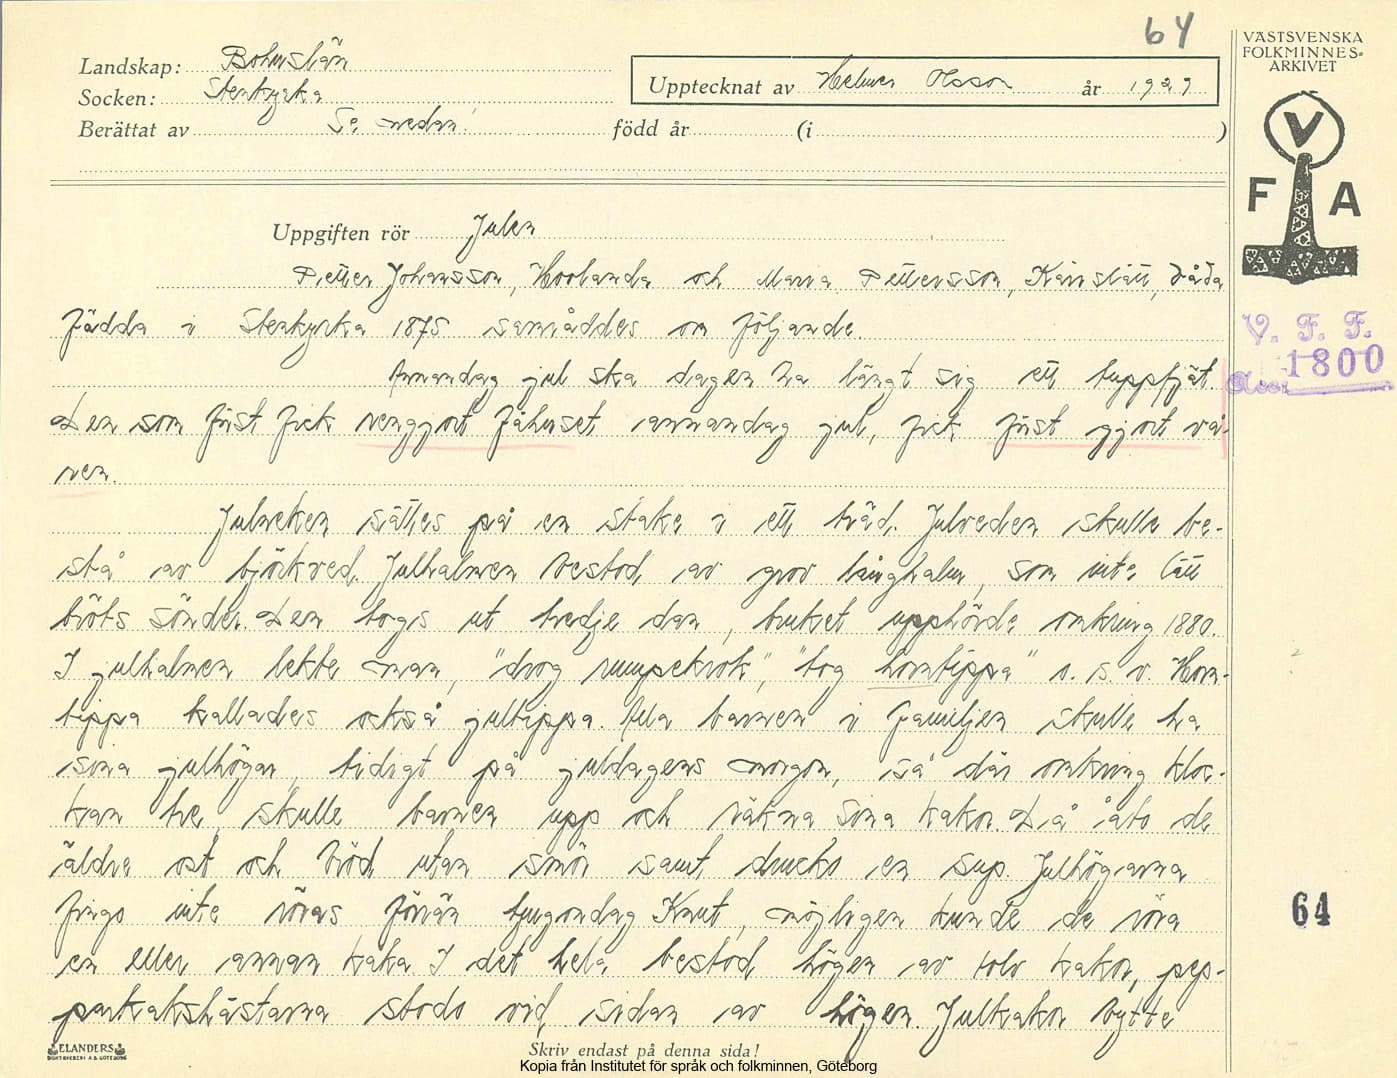 64
VÄSTSVENSKA
FOLKMINNES-
ARKIVET
Landskap: Bohuslän
Socken: Stenkyrka
Upptecknat av Helmer Olsson år 1929
Berättat av Se nedan! född år (i )
V
F A
Uppgiften rör Julen
Petter Johansson, Hovlanda och Maria Pettersson, båda
födda i Stenkyrka 1875 samråddes om följande.
Annandag jul ska dagen ha längt sig ett tuppfjät.
Den som först fick rengjort fähuset annandag jul, fick först gjort vå-
ren.
V. F. F.
Acc. 1800
Julneken sättes på en stake i ett träd. Julveden skulle be-
stå av björkved. Julhalmen bestod av grov långhalm, som inte lätt
bröts sönder. Den togs ut tredje dan, bruket upphörde omkring 1880.
I julhalmen lekte man, "drog rumpekrok", "tog horntippa" o. s. v. Horn-
tippa kallades också jultippa. Alla barnen i familjen skulle ha
sina julhögar, tidigt på juldagens morgon, så där omkring kloc-
kan tre, skulle barnen upp och räkna sina kakor. Då åto de
äldre ost och bröd utan smör samt drucko en sup. Julhögarna
fingo inte röras förrän tjugondag Knut, möjligen kunde de röra
en eller annan kaka. I det hela bestod högen av tolv kakor, pep-
parkakshästarna stodo vid sidan av högen. Julkakor bytte
64
ELANDERS
BOKTRYCKERI A.B. GÖTEBORG
Skriv endast på denna sida!
Kopia från Institutet för språk och folkminnen, Göteborg